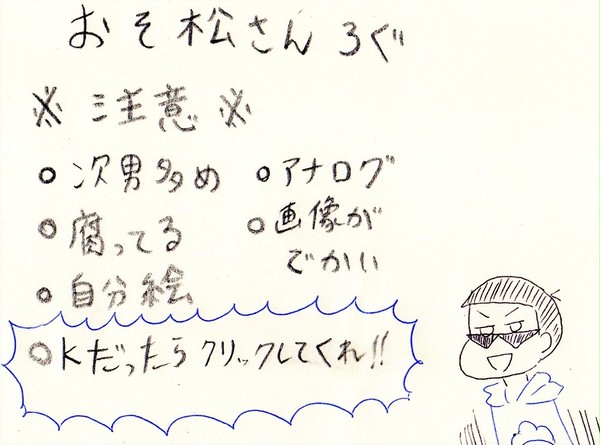 おそ松さん ろぐ
※ 注意 ※
○次男多め
○アナログ
○腐ってる
○画像が
でかい
○自分絵
○Kだったらクリックしてくれ!!